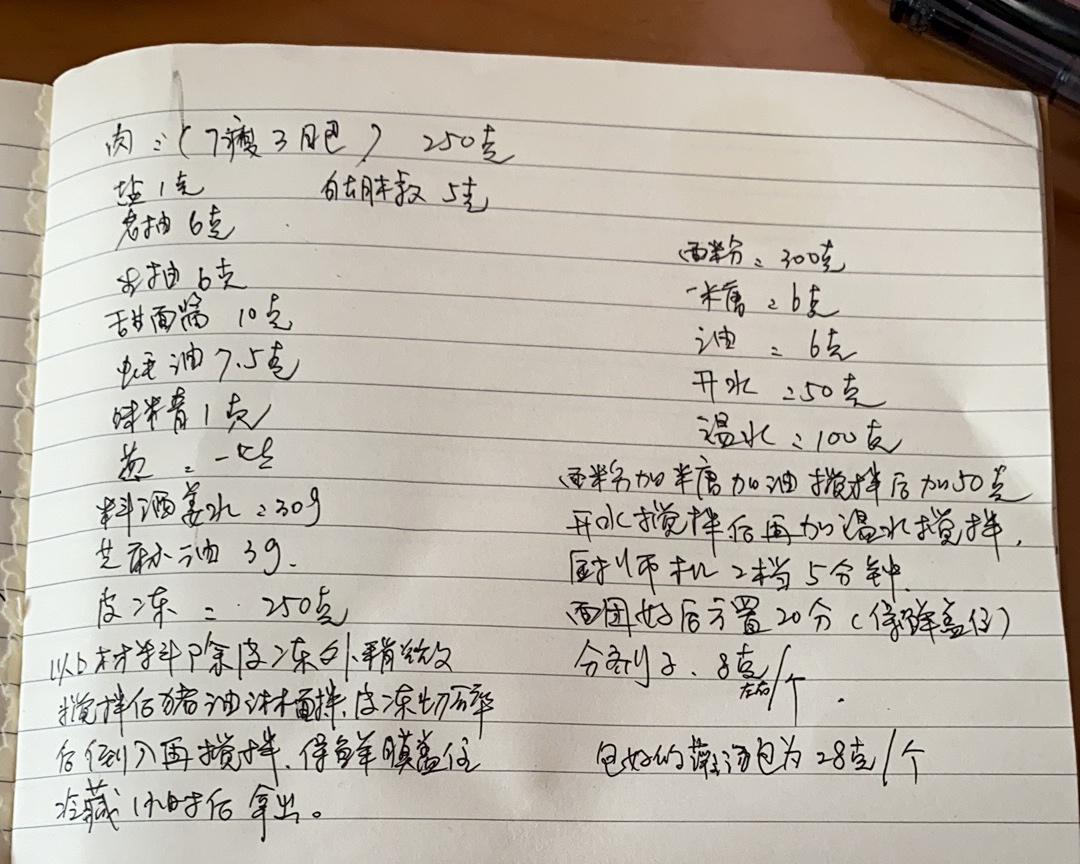 肉:(7瘦3肥) 250克
盐1克 白胡椒 5克
老抽6克
生抽6克
甜面酱 10克
蚝油7.5克
味精1克
葱:一些
料酒姜水:30g
芝麻油 3g.
皮冻: 250克
以上材料除皮冻外
搅拌后猪油 拌、皮冻切碎
后倒入再搅拌、保鲜膜盖住
冷藏1小时后拿出。
面粉:300克
糖:6克
油:6克
开水:50克
温水:100克
面粉加糖加油搅拌后加50克
开水搅拌后再加温水搅拌,
厨师机2档5分钟.
面团好后方置20分(保鲜盖住)
分割子、8克左右/个.
包好的灌汤包为28克/个